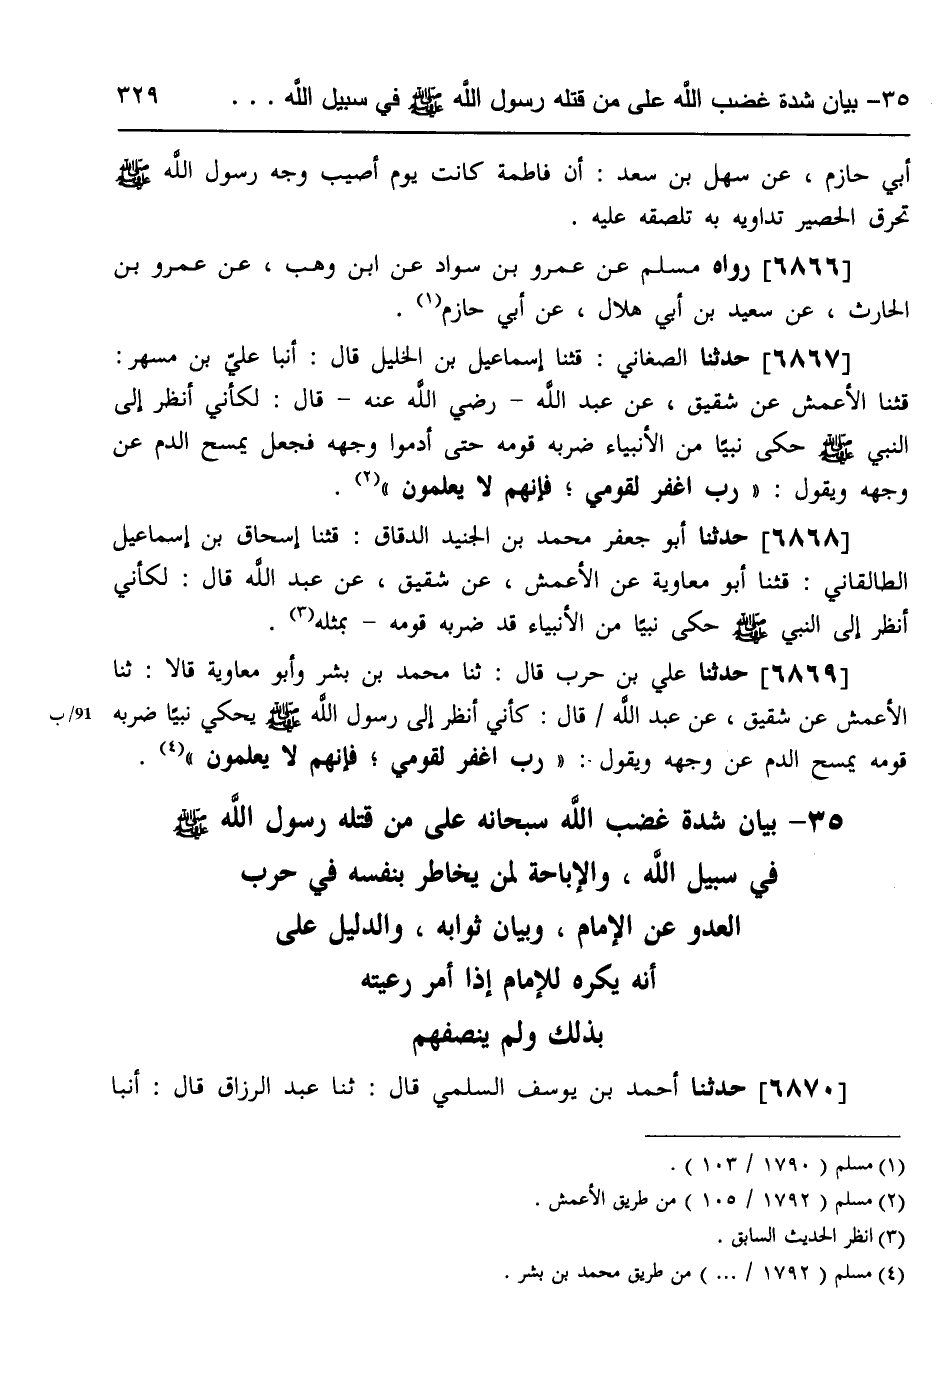 ٣٥- بيان شدة غضب اللَّه على من قتله رسول اللَّه ﷺ في سبيل اللَّه . . . ٣٢٩
أبي حازم ، عن سهل بن سعد : أن فاطمة كانت يوم أصيب وجه رسول اللَّه ﷺ
تحرق الحصير تداويه به تلصقه عليه .
[٦٨٦٦] رواه مسلم عن عمرو بن سواد عن ابن وهب ، عن عمرو بن
الحارث ، عن سعيد بن أبي هلال ، عن أبي حازم(١) .
[٦٨٦٧] حدثنا الصغاني : قثنا إسماعيل بن الخليل قال : أنبا عليّ بن مسهر :
قثنا الأعمش عن شقيق ، عن عبد اللَّه - رضي اللَّه عنه - قال : لكأني أنظر إلى
النبي ﷺ حكى نبيًا من الأنبياء ضربه قومه حتى أدموا وجهه فجعل يمسح الدم عن
وجهه ويقول : « رب اغفر لقومي ؛ فإنهم لا يعلمون »(٢) .
[٦٨٦٨] حدثنا أبو جعفر محمد بن الجنيد الدقاق : قثنا إسحاق بن إسماعيل
الطالقاني : قثنا أبو معاوية عن الأعمش ، عن شقيق ، عن عبد اللَّه قال : لكأني
أنظر إلى النبي ﷺ حكى نبيًا من الأنبياء قد ضربه قومه - بمثله(٣) .
[٦٨٦٩] حدثنا علي بن حرب قال : ثنا محمد بن بشر وأبو معاوية قالا : ثنا
الأعمش عن شقيق ، عن عبد اللَّه / قال : كأني أنظر إلى رسول اللَّه ﷺ يحكي نبيًا ضربه 91/ب
قومه يمسح الدم عن وجهه ويقول : « رب اغفر لقومي ؛ فإنهم لا يعلمون »(٤) .
٣٥- بيان شدة غضب اللَّه سبحانه على من قتله رسول اللَّه ﷺ
في سبيل اللَّه ، والإباحة لمن يخاطر بنفسه في حرب
العدو عن الإمام ، وبيان ثوابه ، والدليل على
أنه يكره للإمام إذا أمر رعيته
بذلك ولم ينصفهم
[٦٨٧٠] حدثنا أحمد بن يوسف السلمي قال : ثنا عبد الرزاق قال : أنبا
(١) مسلم ( ١٧٩٠ / ١٠٣ ) .
(٢) مسلم ( ١٧٩٢ / ١٠٥ ) من طريق الأعمش .
(٣) انظر الحديث السابق .
(٤) مسلم ( ١٧٩٢ / ... ) من طريق محمد بن بشر .